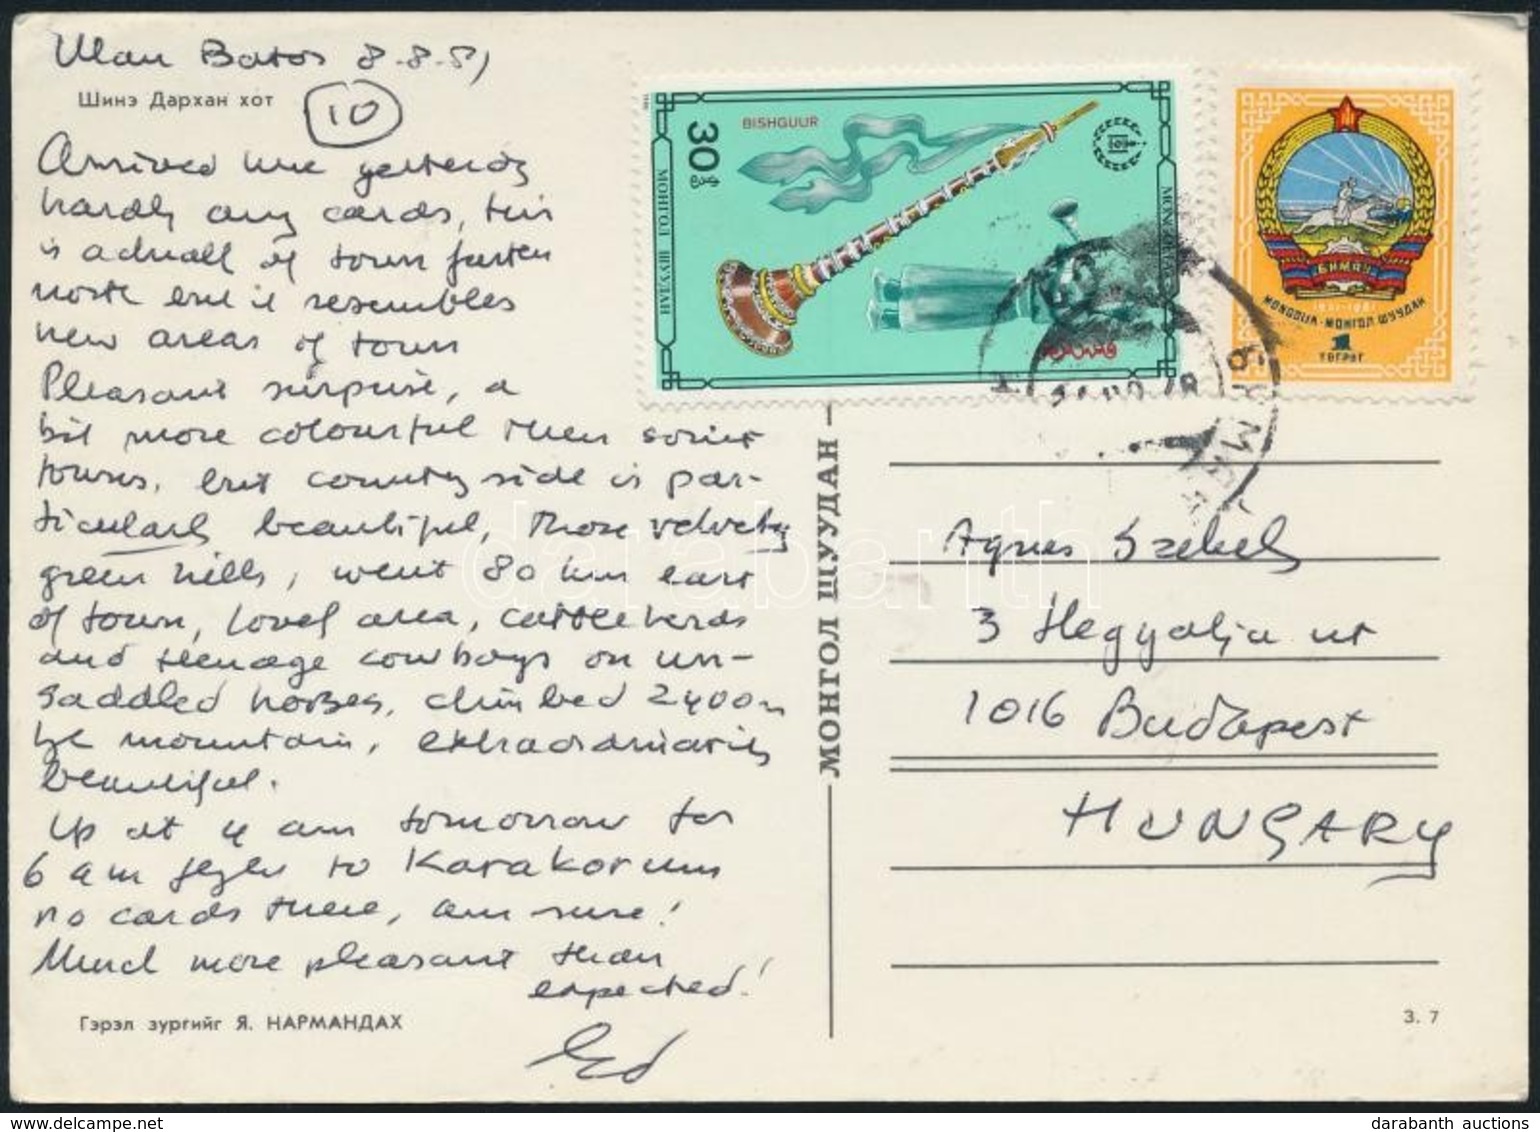 Ulan Bator 8-8-81
Шинэ Дархан хот
10
Arrived here yesterday
hardly any cards, this
is actually of town further
north but it resembles
new areas of town
Pleasant surprise, a
bit more colourful then soviet
towns, but country side is par-
ticularly beautiful, those velvety
green hills, went 80 km east
of town, lovel area, cattle herds
and teenage cowboys on un-
saddled horses, climbed 2400m
mountain, extraordinarily
beautiful.
Up at 4 am tomorrow for
6 am to Karakorum
no cards there, am sure!
Much more pleasant than
expected!
Ed
Гэрэл зургийг Я. НАРМАНДАХ
МОНГОЛ ШУУДАН
BISHGUUR
30
МОНГОЛ ШУУДАН
MONGOLIA
БНМАУ
MONGOLIA-МОНГОЛ ШУУДАН
1
ТӨГРӨГ
Agnes Szekely
3 Hegyalja ut
1016 Budapest
HUNGARY
3. 7
darabanth
darabanth auctions